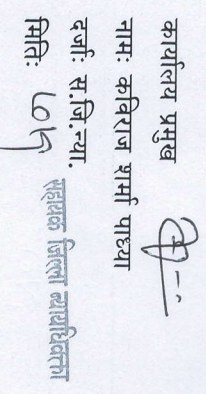 कार्यालय प्रमुख
नामः कविराज शर्मा पाध्या
दर्जाः स.जि.न्या.
सहायक जिल्ला न्यायाधिवक्ता
मितिः